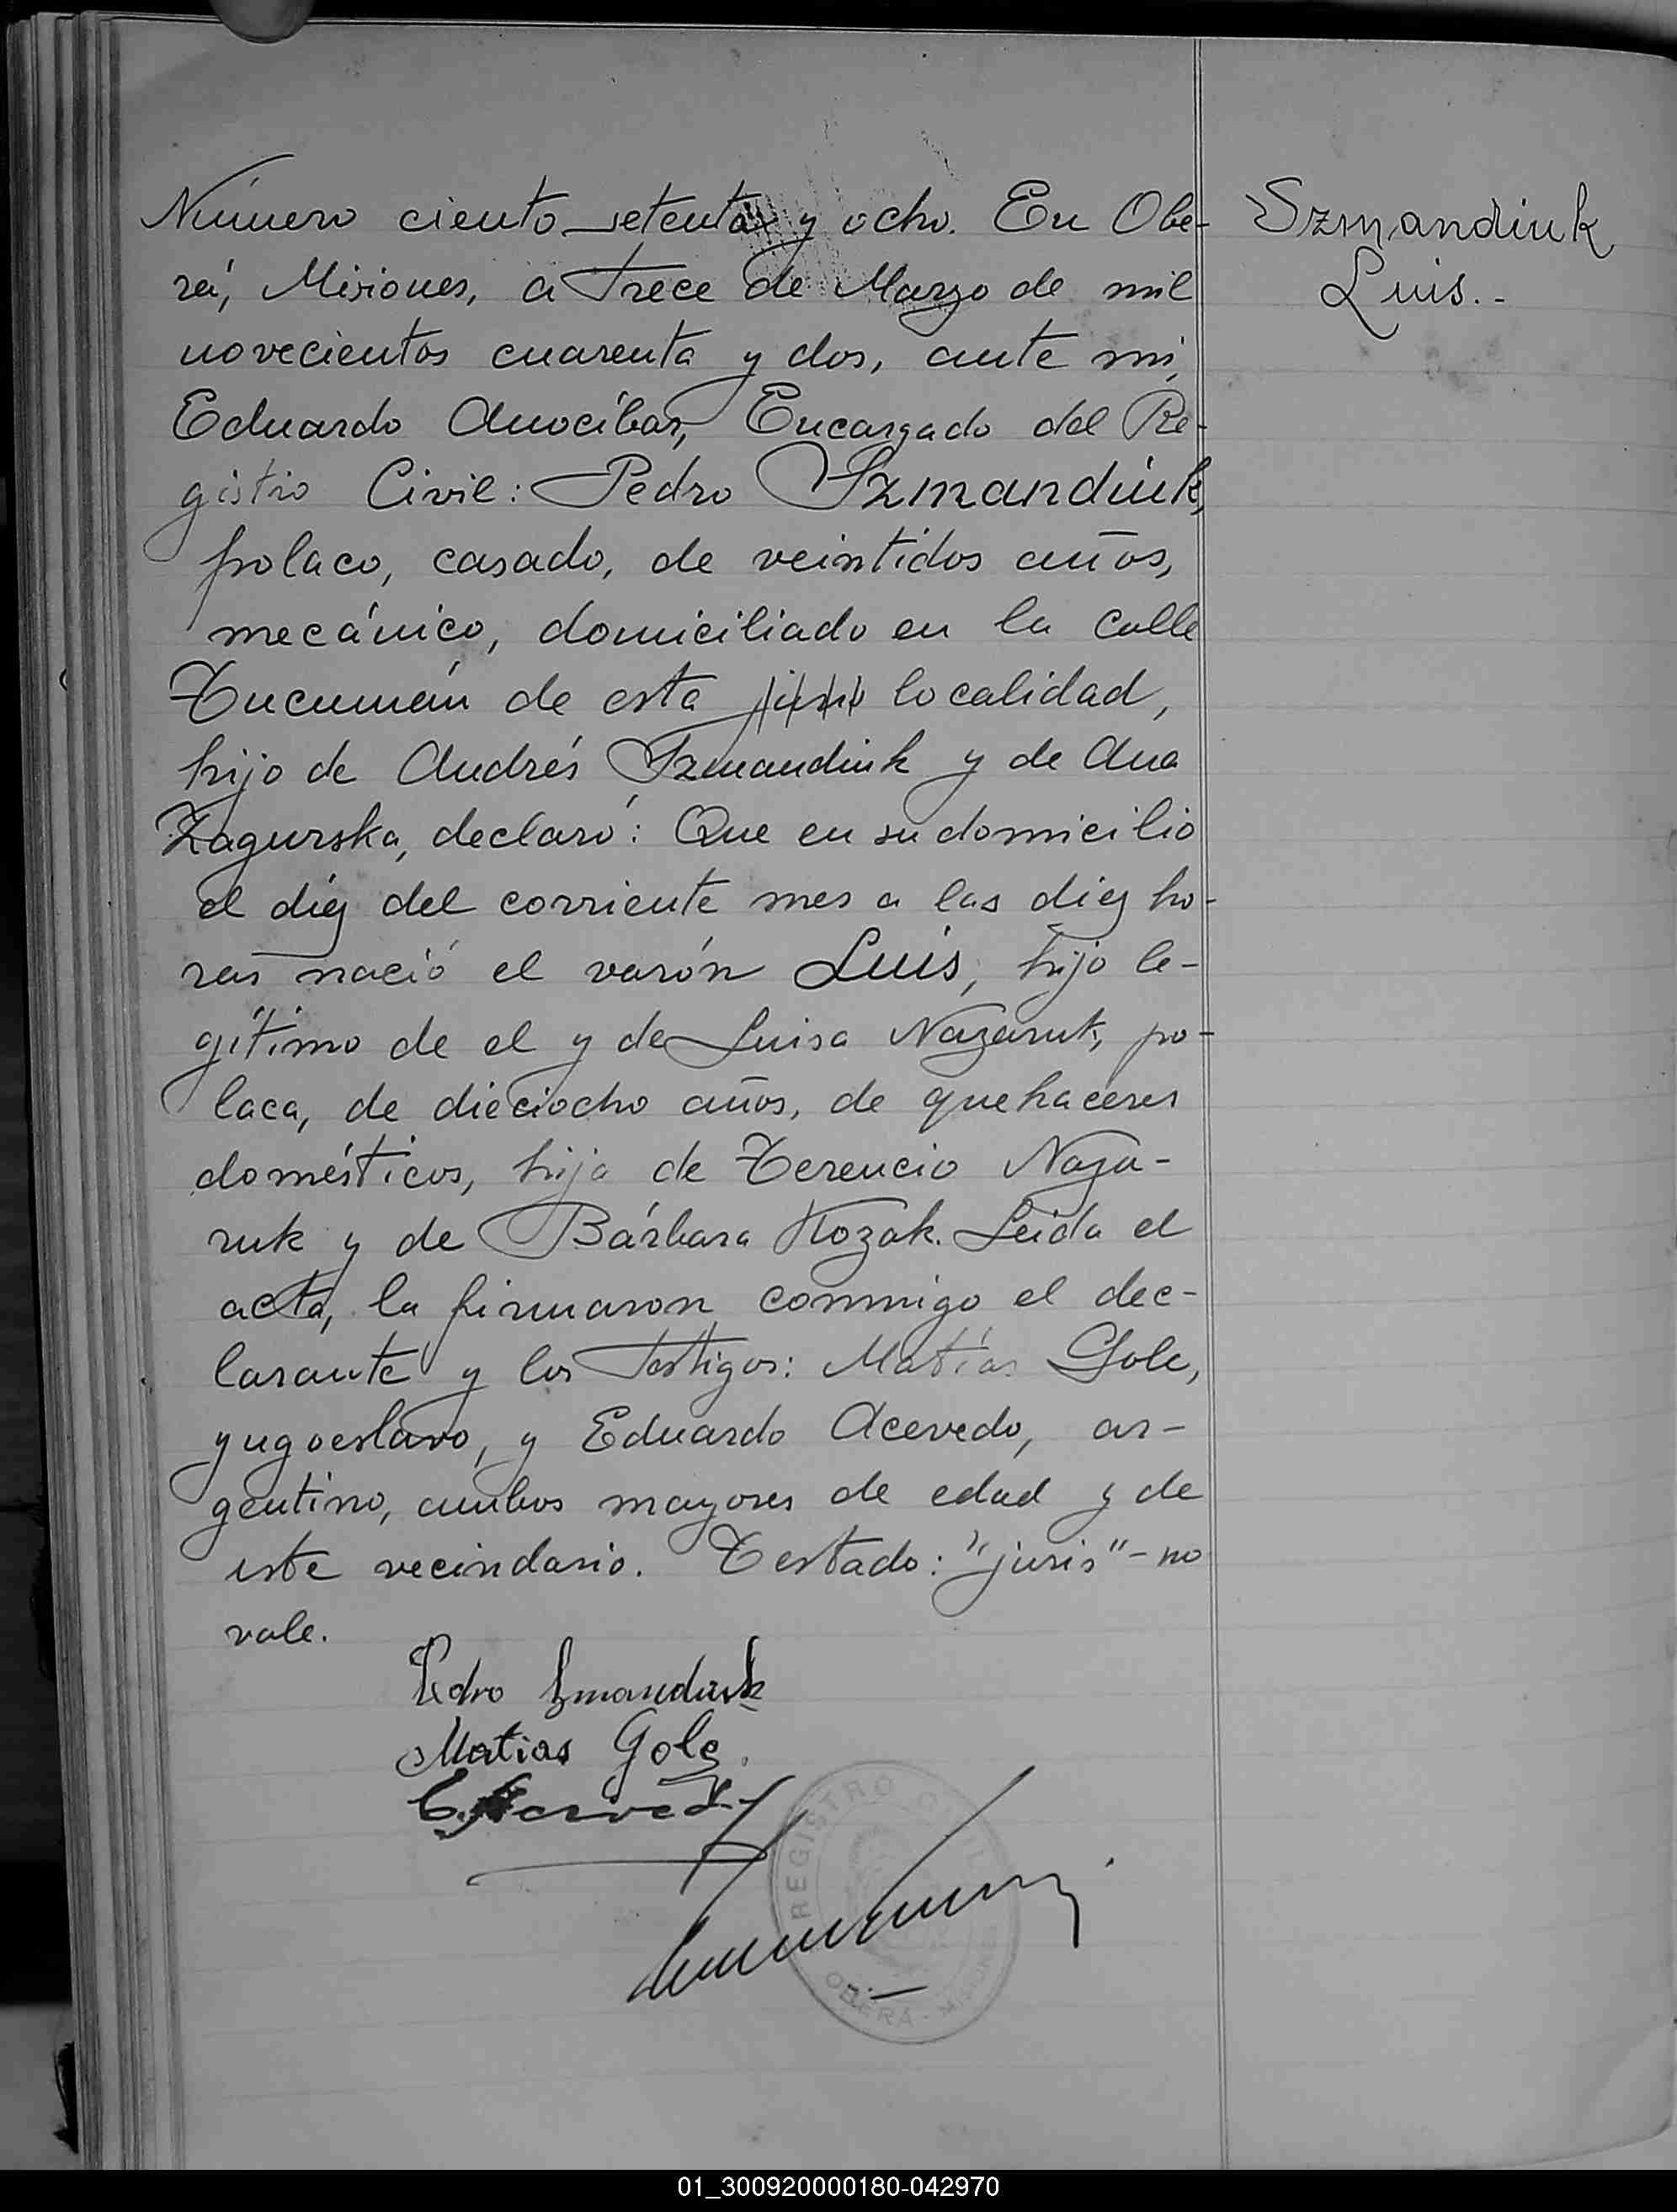 Número ciento setenta y ocho. En Obe-
rá, Misiones, a trece de Marzo de mil
novecientos cuarenta y dos, ante mi,
Eduardo Anocíbar, Encargado del Re-
gistro Civil: Pedro Szmandiuk,
polaco, casado, de veintidos años,
mecánico, domiciliado en la calle
Tucumán de esta juris localidad,
hijo de Andrés Szmandiuk y de Ana
Zagurska, declaró: Que en su domicilio
el diez del corriente mes a las diez ho-
ras nació el varón Luis, hijo le-
gítimo de el y de Luisa Nazaruk, po-
laca, de dieciocho años, de quehaceres
domésticos, hija de Terencio Naza-
ruk y de Bárbara Kozak. Leida el
acta, la firmaron conmigo el dec-
larante y los testigos: Matías Gole,
yugoeslavo, y Eduardo Acevedo, ar-
gentino, ambos mayores de edad y de
este vecindario. Testado: "juris" - no
vale.
Szmandiuk
Luis.-
Pedro Szmandiuk
Matias Gole
E. Acevedo
REGISTRO CIVIL
OBERA - MISIONES
01_300920000180-042970